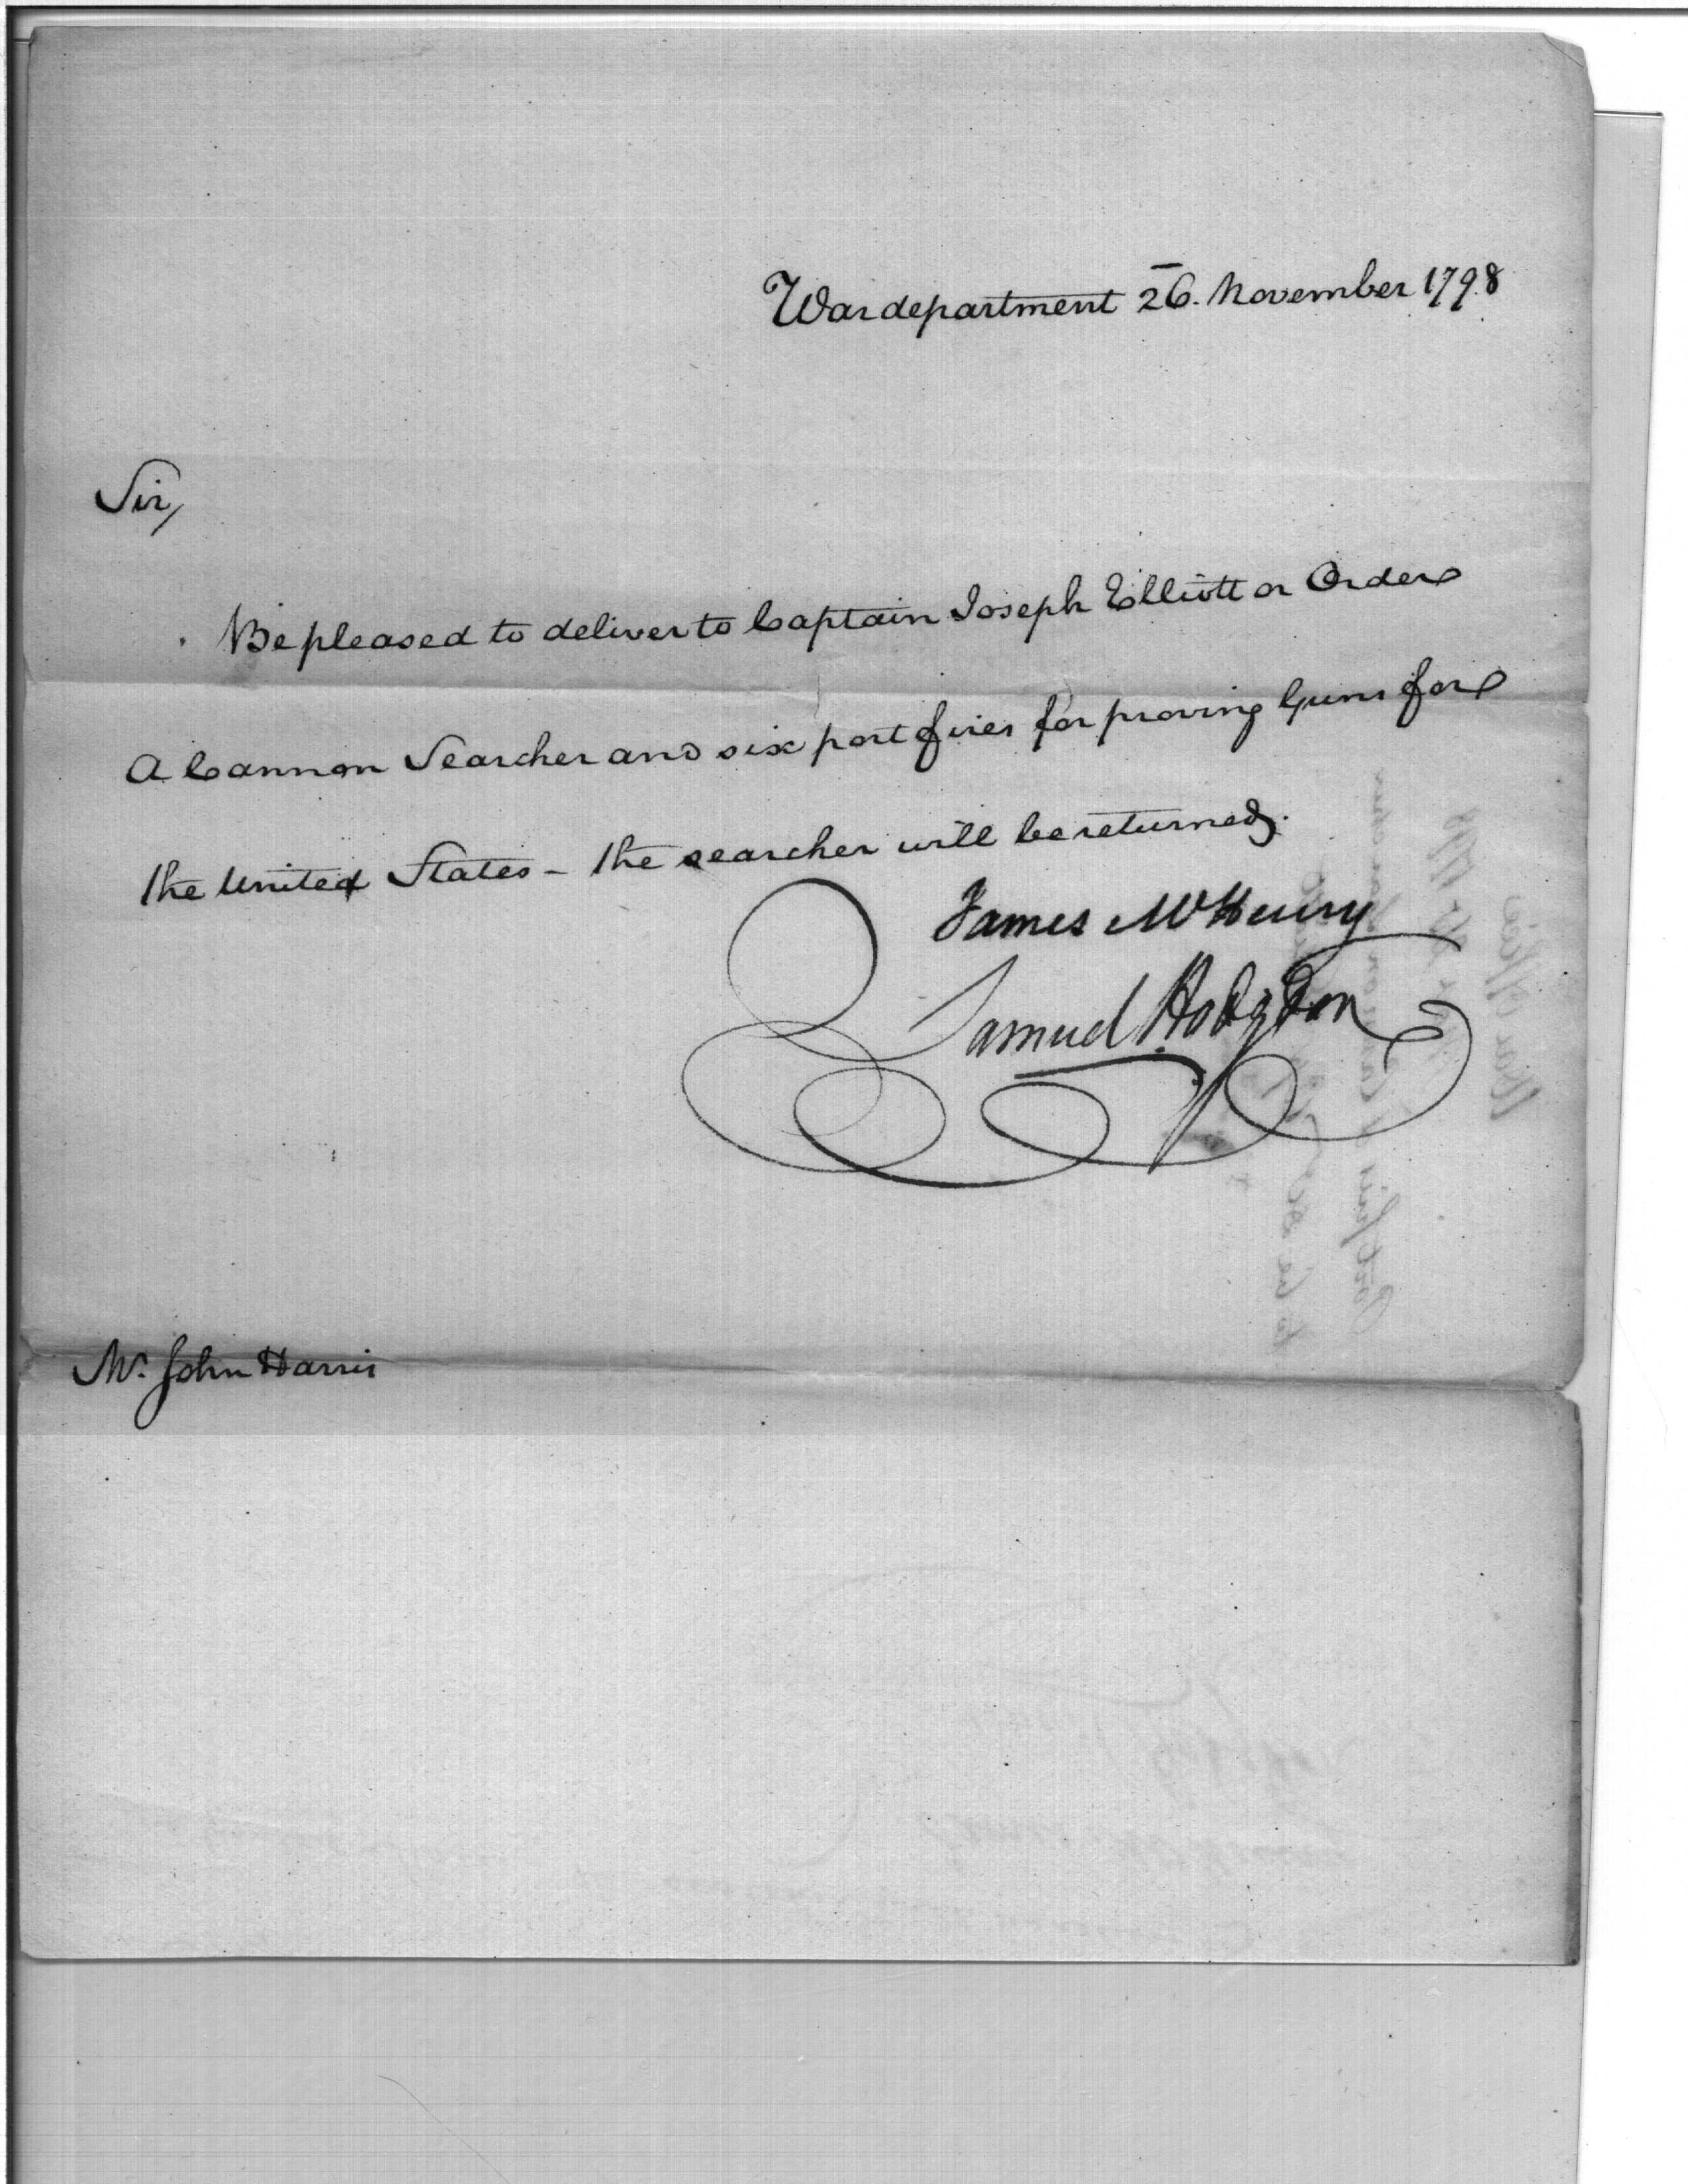 War department 26. November 1798
Sir,
Be pleased to deliver to Captain Joseph Elliott or Order
A Cannon Searcher and six port fires for proving Guns for
the United States – the searcher will be returned.
James McHenry
Samuel Hodgdon
Mr. John Harris
War Office